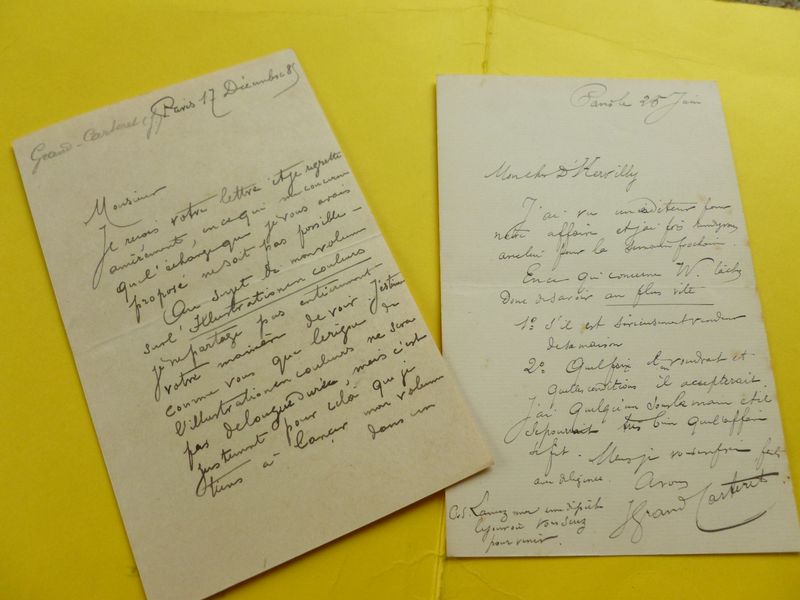 Grand-Carteret (J)
Paris 17 Décembre 85
Monsieur
Je reçois votre lettre et je regrette
amèrement, en ce qui me concerne
que l'échange que je vous avais
proposé ne soit pas possible —
Au sujet de mon volume
sur l'Illustration en couleurs
je ne partage pas entièrement
votre manière de voir J'estime
comme vous que le règne de
l'illustration en couleurs ne sera
pas de longue durée, mais c'est
justement pour cela que je
tiens à lancer mon volume
dans un
Paris le 25 Juin
Mon cher D'Hervilly
J'ai vu un éditeur pour
notre affaire et j'ai fois
pour la semaine prochaine.
En ce qui concerne W.
Donc de savoir au plus vite
1º S'il est sérieusement vendeur
de la maison
2º Quel prix il en voudrait et
quelles conditions il accepterait.
J'ai quelqu'un sous la main et il
se pourrait très bien que l'affaire
se fit. Mais je vous en prie,
diligence. A vous
J Grand Carteret
une dépêche
le jour où vous
pour venir.